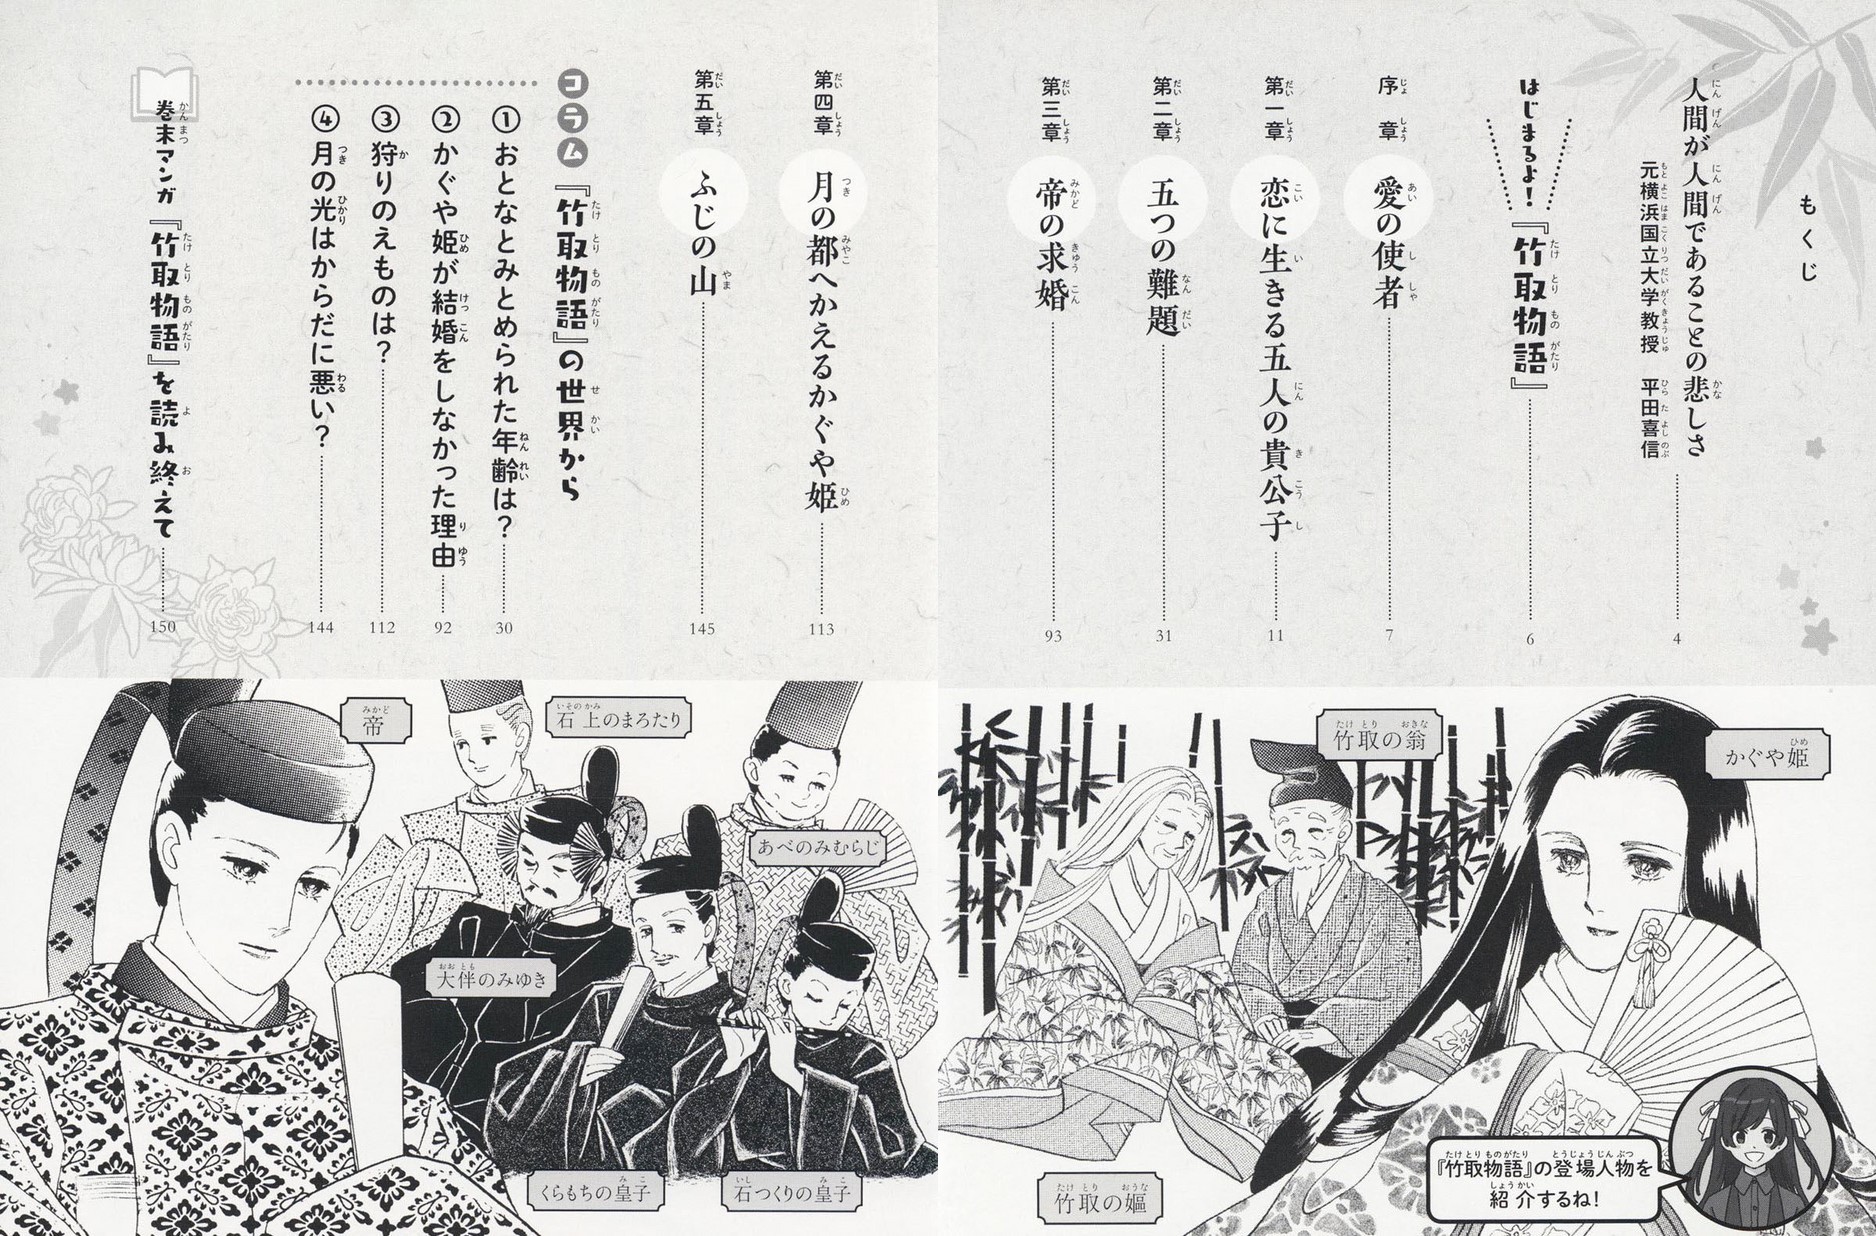 もくじ
人間が人間であることの悲しさ
元横浜国立大学教授 平田喜信
4
はじまるよ!『竹取物語』
6
序章 愛の使者
7
第一章 恋に生きる五人の貴公子
11
第二章 五つの難題
31
第三章 帝の求婚
93
第四章 月の都へかえるかぐや姫
113
第五章 ふじの山
145
コラム『竹取物語』の世界から
①おとなとみとめられた年齢は?
30
②かぐや姫が結婚をしなかった理由
92
③狩りのえものは?
112
④月の光はからだに悪い?
144
巻末マンガ『竹取物語』を読み終えて
150
かぐや姫
竹取の翁
竹取の嫗
『竹取物語』の登場人物を
紹介するね!
石上のまろたり
帝
あべのみむらじ
大伴のみゆき
石つくりの皇子
くらもちの皇子